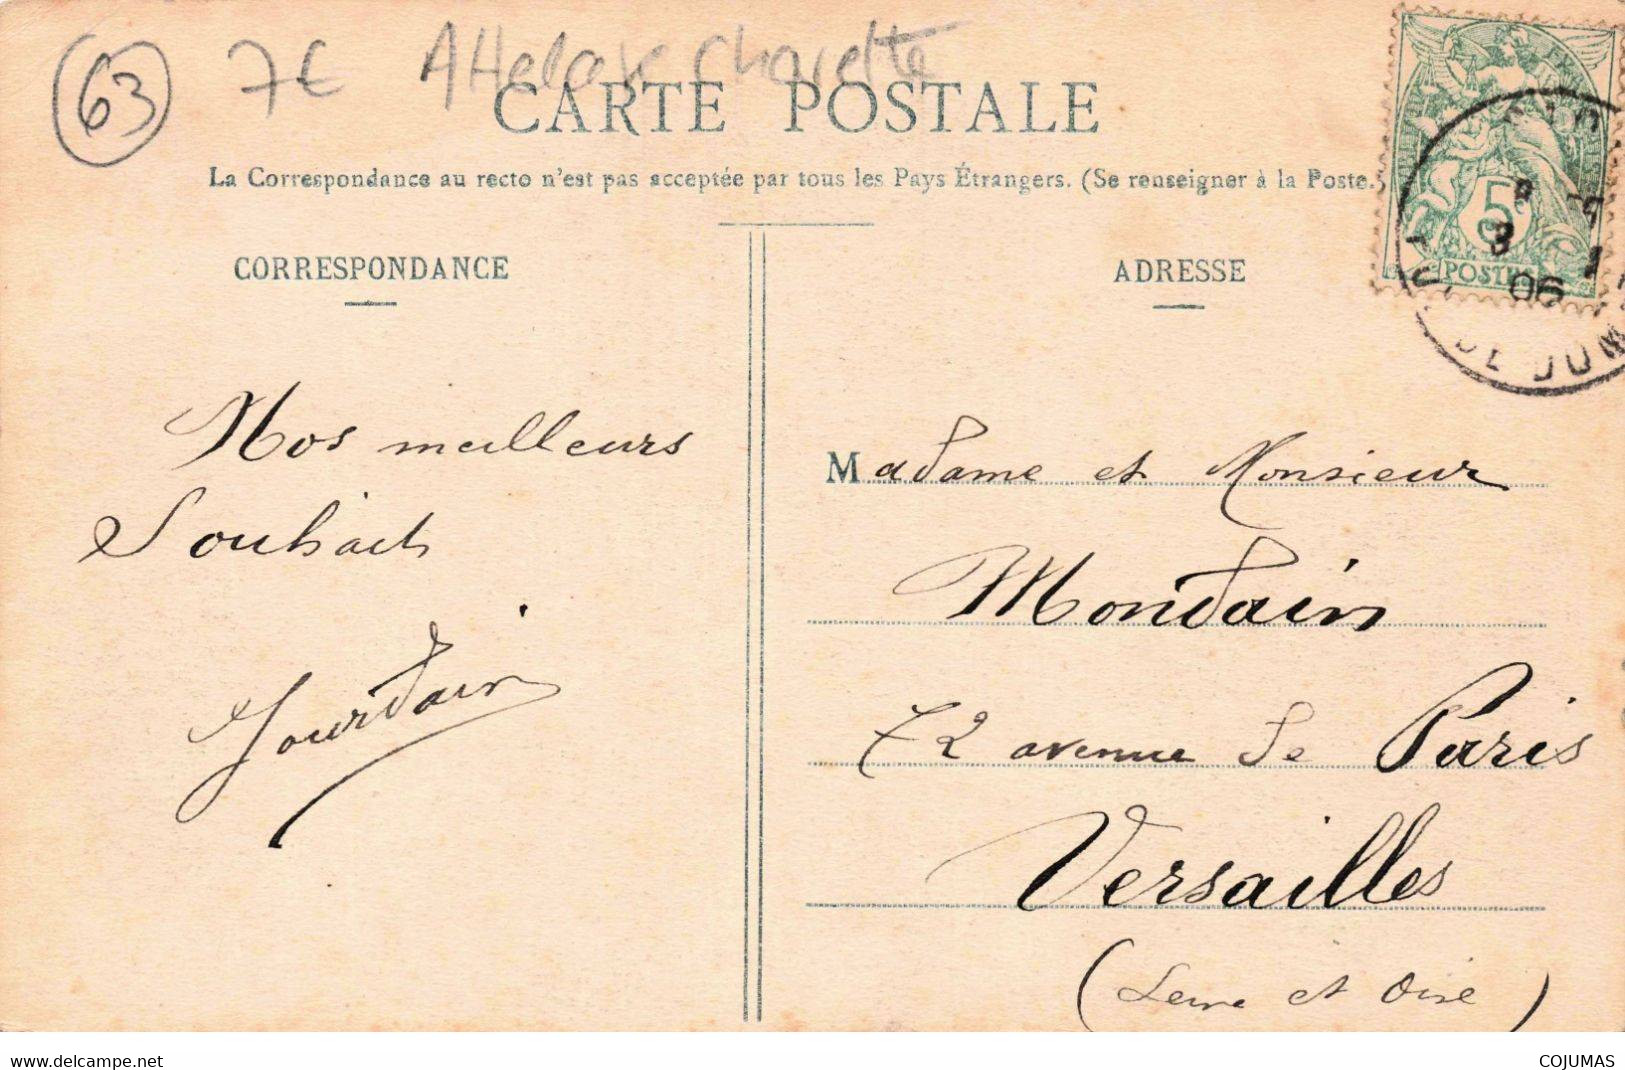 63 7€ Attelage Charette
CARTE POSTALE
La Correspondance au recto n'est pas acceptée par tous les Pays Étrangers. (Se renseigner à la Poste.)
CORRESPONDANCE
ADRESSE
5c
POSTES
8
3 1
06
DE DOM
Nos meilleurs
Souhaits
Jourdain
Madame et Monsieur
Mondain
72 avenue de Paris
Versailles
(Seine et Oise)
www.delcampe.net
COJUMAS